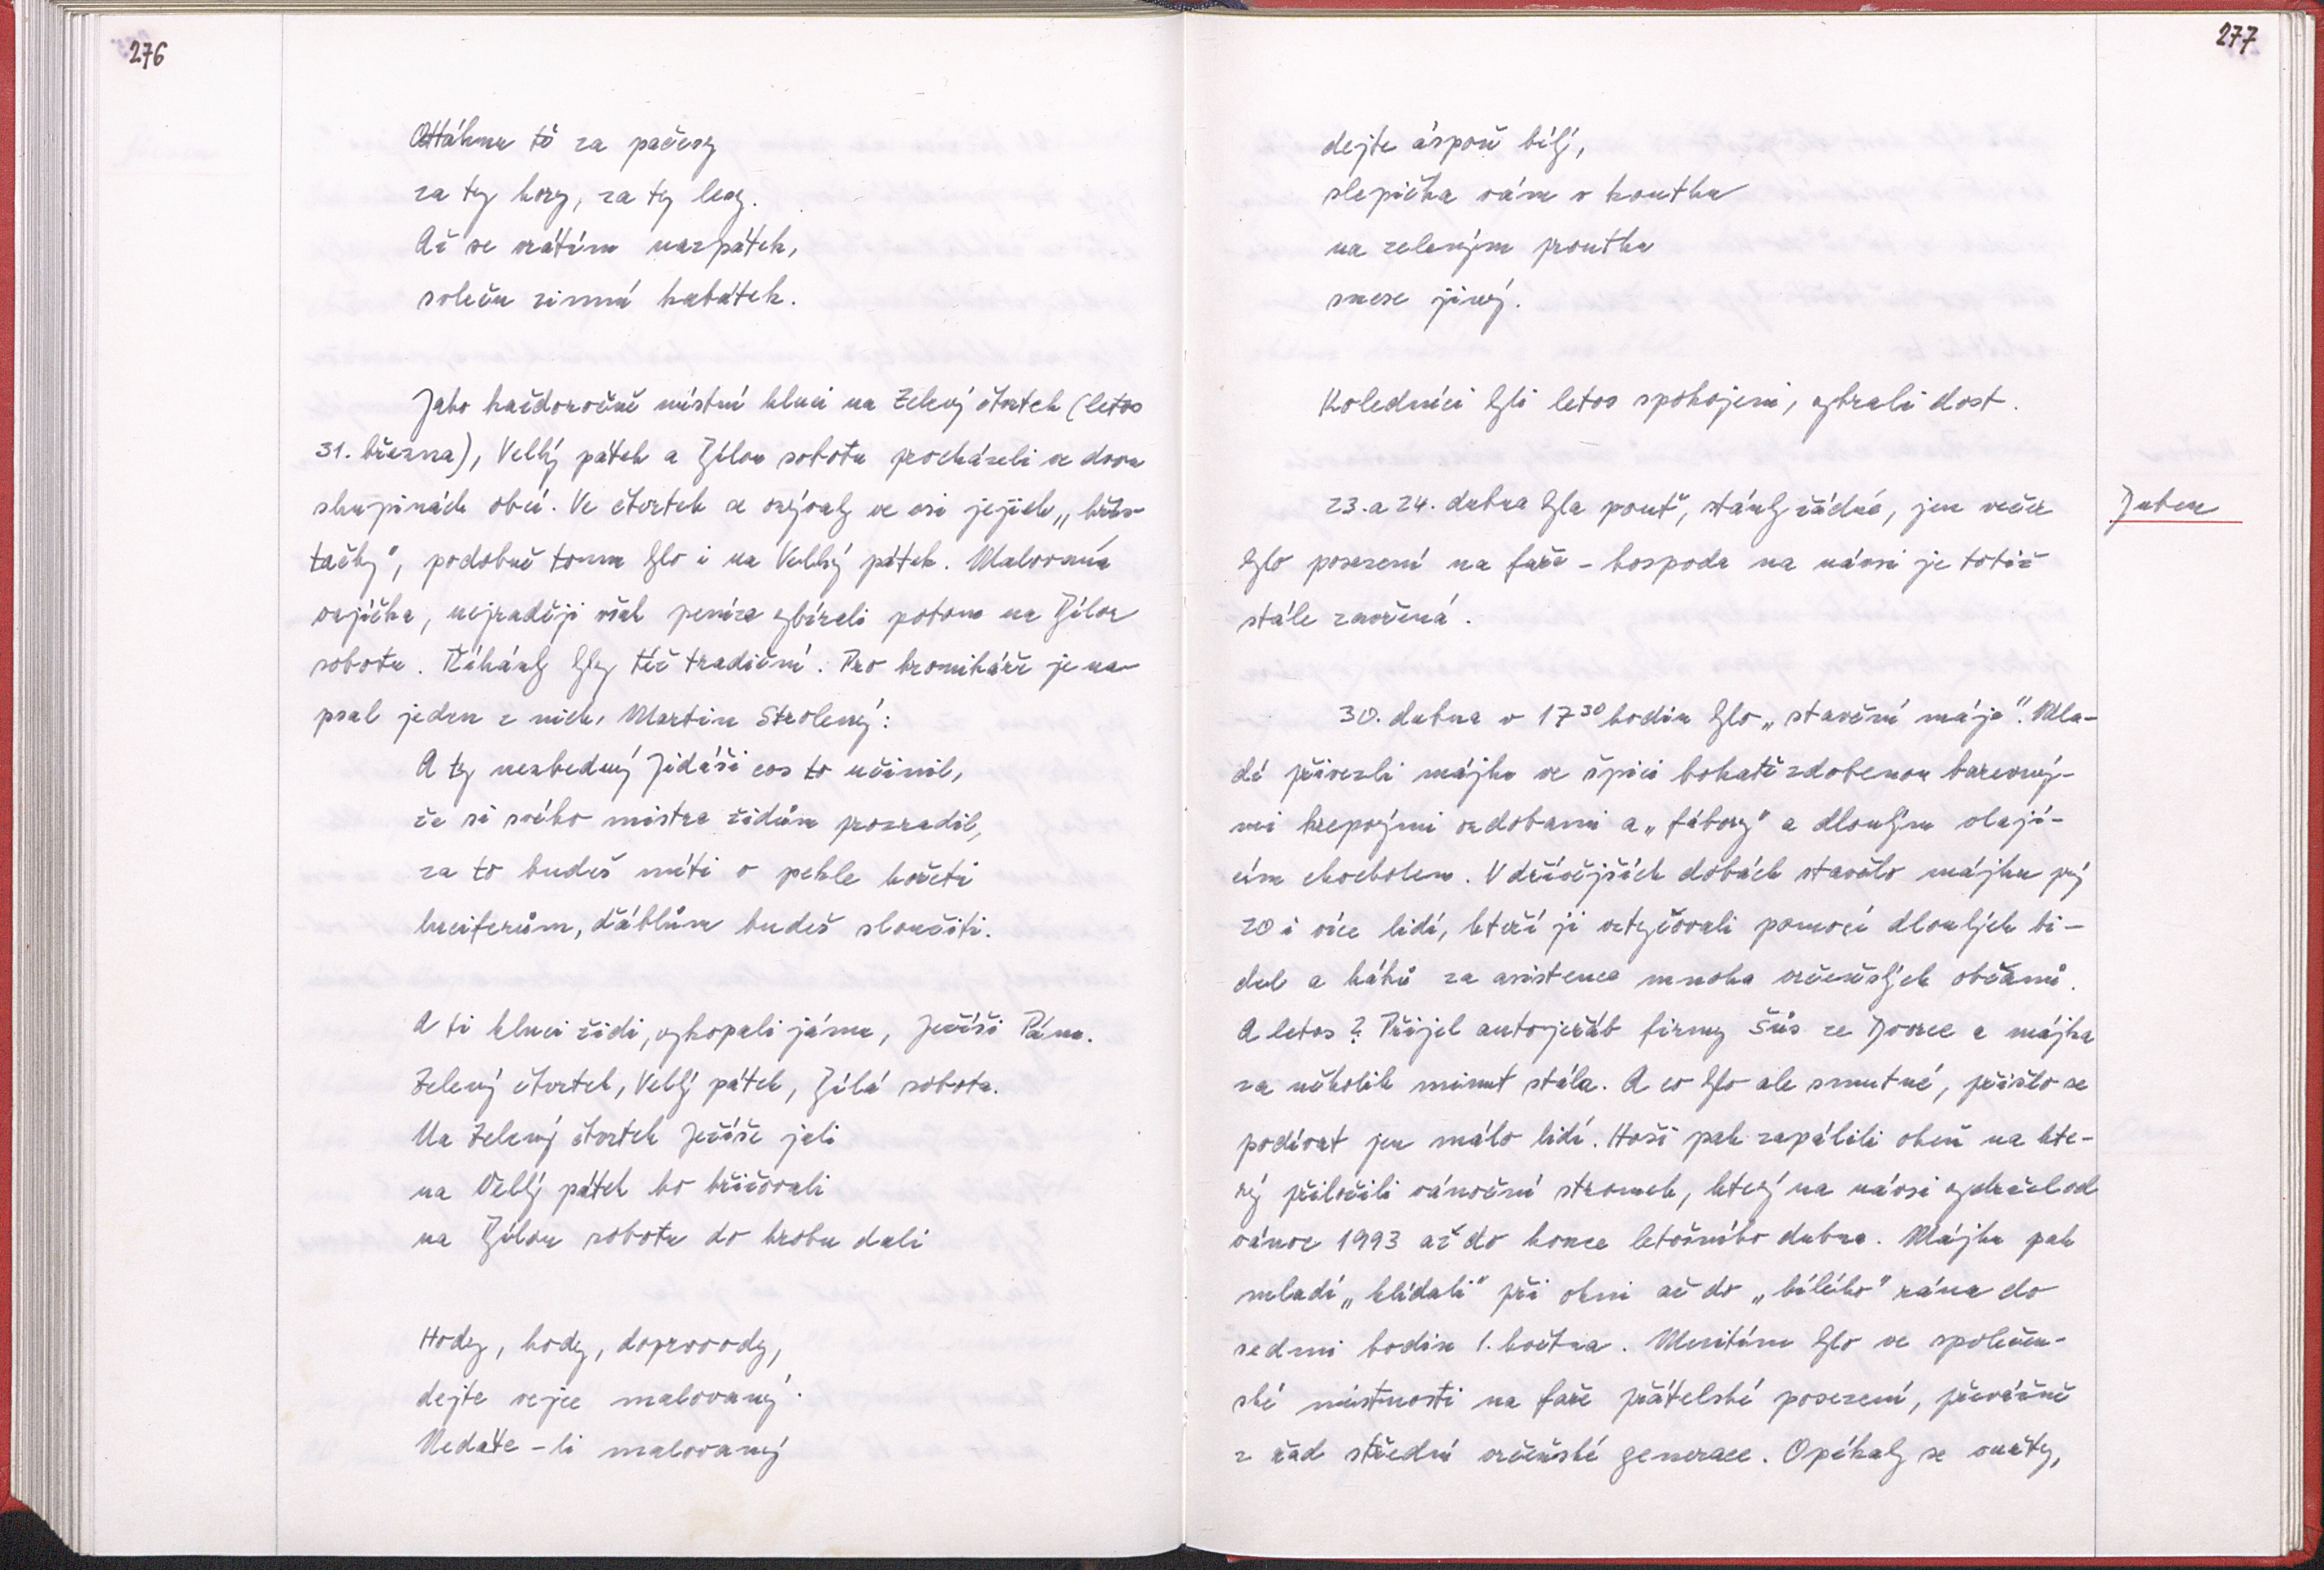 276
Ottáhnu tě za pačesy
za ty hory, za ty lesy.
Až se vrátím nazpátek,
svleču zimní kabátek.
Jako každoročně místní kluci na Zelený čtvrtek (letos
31. března), Velký pátek a Bílou sobotu procházeli ve dvou
skupinách obcí. Ve čtvrtek se ozývaly ve vsi jejich
tačky", podobně tomu bylo i na Velký pátek. Malovaná
vajíčka, nejraději však peníze vybírali potom na Bílou
sobotu. Říkánky byly též tradiční. Pro kronikáře je na-
psal jeden z nich, Martin Strolený:
A ty nezbedný Jidáši cos to učinil,
že si svého mistra židům prozradil,
za to budeš míti v pekle hořeti
luciferům, ďáblům budeš sloužiti.
A ti kluci židi, vykopali jámu, Ježíši Pánu.
Zelený čtvrtek, Velký pátek, Bílá sobota.
Na Zelený čtvrtek Ježíše jali
na Velký pátek ho křižovali
na Bílou sobotu do hrobu dali
Hody, hody, doprovody,
dejte vejce malovaný.
Nedáte-li malovaný
277
dejte áspoň bílý,
slepička vám v koutku
na zeleným proutku
snese jiný.
Koledníci byli letos spokojeni, vybrali dost.
Duben
23. a 24. dubna byla pouť, stánky žádné, jen večer
bylo posezení na faře - hospoda na návsi je totiž
stále zavřená.
30. dubna v 17³⁰ hodin bylo „stavění máje". Mla-
dí přivezli májku ve špici bohatě zdobenou barevný-
mi krepovými ozdobami a „fábory" a dlouhým vlají-
cím chocholem. V dřívějších dobách stavělo májku prý
20 i více lidí, kteří ji vztyčovali pomocí dlouhých bi-
del a háků za asistence mnoha vrčeňských občanů.
A letos? Přijel autojeřáb firmy Šůs ze Dvorce a májka
za několik minut stála. A co bylo ale smutné, přišlo se
podívat jen málo lidí. Hoši pak zapálili oheň na kte-
rý přiložili vánoční stromek, který na návsi vydržel od
vánoc 1993 až do konce letošního dubna. Májku pak
mladí „hlídali" při ohni až do „bílého" rána do
sedmi hodin 1. května. Mezitím bylo ve společen-
ské místnosti na faře přátelské posezení, převážně
z řad střední vrčeňské generace. Opékaly se vuřty,